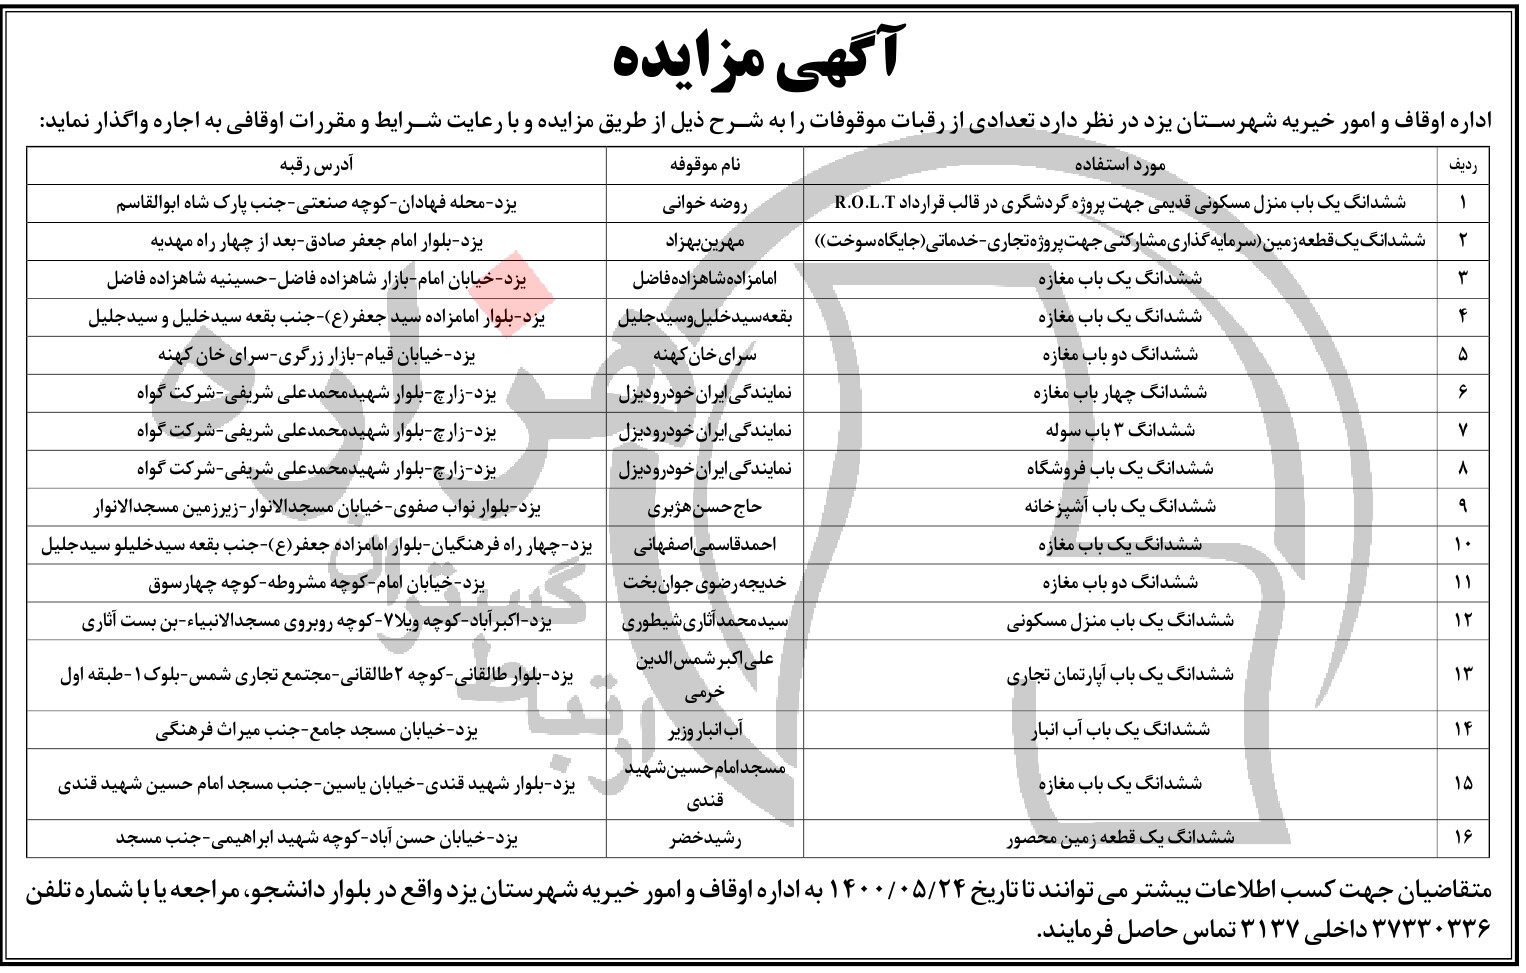 آگهی مزایده
اداره اوقاف و امور خیریه شهرستان یزد در نظر دارد تعدادی از رقبات موقوفات را به شرح ذیل از طریق مزایده و با رعایت شرایط و مقررات اوقافی به اجاره واگذار نماید:
ردیف مورد استفاده نام موقوفه آدرس رقبه
۱ ششدانگ یک باب منزل مسکونی قدیمی جهت پروژه گردشگری در قالب قرارداد R.O.L.T روضه خوانی یزد-محله فهادان-کوچه صنعتی-جنب پارک شاه ابوالقاسم
۲ ششدانگ یک قطعه زمین (سرمایه گذاری مشارکتی جهت پروژه تجاری-خدماتی (جایگاه سوخت)) مهرین بهزاد یزد-بلوار امام جعفر صادق-بعد از چهار راه مهدیه
۳ ششدانگ یک باب مغازه امامزاده شاهزاده فاضل یزد-خیابان امام-بازار شاهزاده فاضل-حسینیه شاهزاده فاضل
۴ ششدانگ یک باب مغازه بقعه سیدخلیل و سیدجلیل یزد-بلوار امامزاده سید جعفر(ع)-جنب بقعه سیدخلیل و سیدجلیل
۵ ششدانگ دو باب مغازه سرای خان کهنه یزد-خیابان قیام-بازار زرگری-سرای خان کهنه
۶ ششدانگ چهار باب مغازه نمایندگی ایران خودرو دیزل یزد-زارچ-بلوار شهیدمحمدعلی شریفی-شرکت گواه
۷ ششدانگ ۳ باب سوله نمایندگی ایران خودرو دیزل یزد-زارچ-بلوار شهیدمحمدعلی شریفی-شرکت گواه
۸ ششدانگ یک باب فروشگاه نمایندگی ایران خودرو دیزل یزد-زارچ-بلوار شهیدمحمدعلی شریفی-شرکت گواه
۹ ششدانگ یک باب آشپزخانه حاج حسن هژبری یزد-بلوار نواب صفوی-خیابان مسجدالانوار-زیرزمین مسجدالانوار
۱۰ ششدانگ یک باب مغازه احمد قاسمی اصفهانی یزد-چهار راه فرهنگیان-بلوار امامزاده جعفر(ع)-جنب بقعه سیدخلیلو سیدجلیل
۱۱ ششدانگ دو باب مغازه خدیجه رضوی جوان بخت یزد-خیابان امام-کوچه مشروطه-کوچه چهارسوق
۱۲ ششدانگ یک باب منزل مسکونی سیدمحمد آثاری شیطوری یزد-اکبرآباد-کوچه ویلا۷-کوچه روبروی مسجدالانبیاء-بن بست آثاری
۱۳ ششدانگ یک باب آپارتمان تجاری علی اکبر شمس الدین خرمی یزد-بلوار طالقانی-کوچه ۲طالقانی-مجتمع تجاری شمس-بلوک۱-طبقه اول
۱۴ ششدانگ یک باب آب انبار آب انبار وزیر یزد-خیابان مسجد جامع-جنب میراث فرهنگی
۱۵ ششدانگ یک باب مغازه مسجد امام حسین شهید قندی یزد-بلوار شهید قندی-خیابان یاسین-جنب مسجد امام حسین شهید قندی
۱۶ ششدانگ یک قطعه زمین محصور رشید خضر یزد-خیابان حسن آباد-کوچه شهید ابراهیمی-جنب مسجد
متقاضیان جهت کسب اطلاعات بیشتر می توانند تا تاریخ ۱۴۰۰/۰۵/۲۴ به اداره اوقاف و امور خیریه شهرستان یزد واقع در بلوار دانشجو، مراجعه یا با شماره تلفن
۳۷۳۳۰۳۳۶ داخلی ۳۱۳۷ تماس حاصل فرمایند.
هزاره
گستران
ارتباط